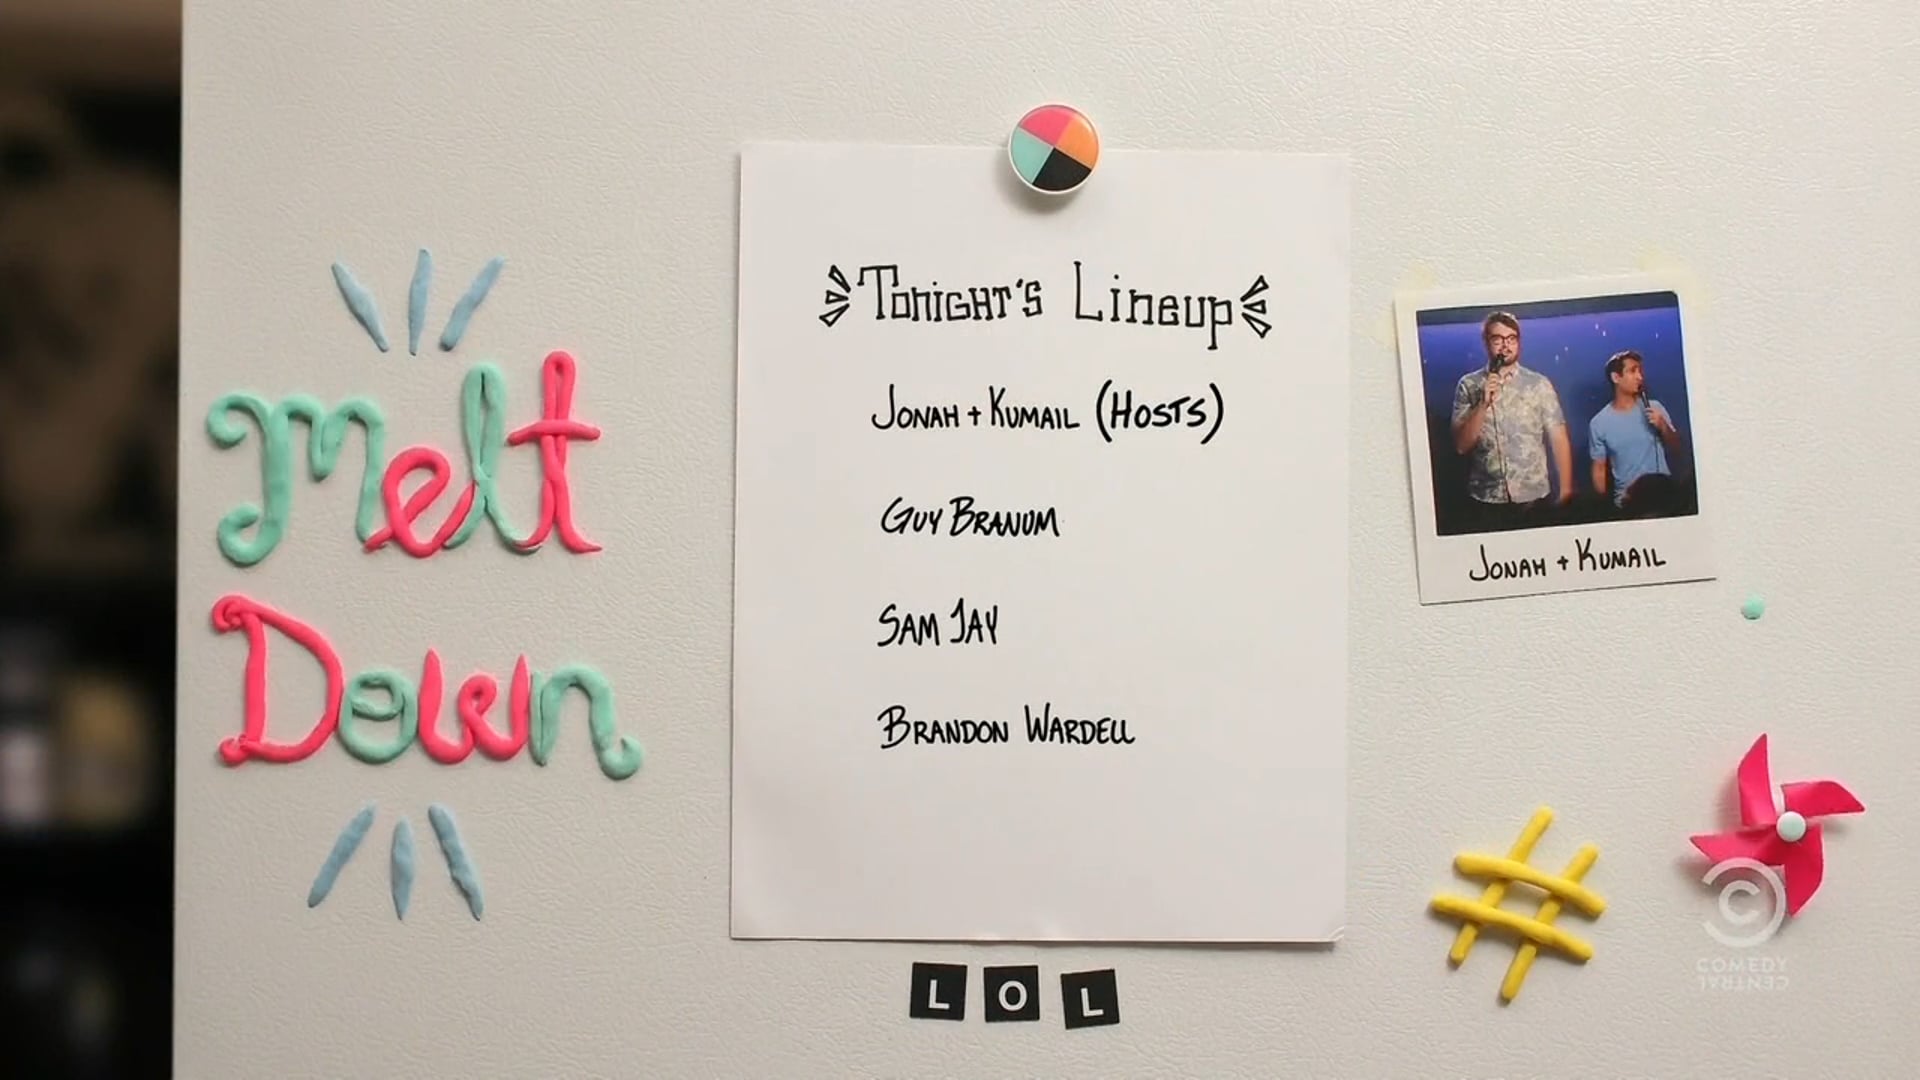 Melt
Down
Tonight's Lineup
Jonah + Kumail (Hosts)
Guy Branum
Sam Jay
Brandon Wardell
Jonah + Kumail
#
LOL
COMEDY
CENTRAL